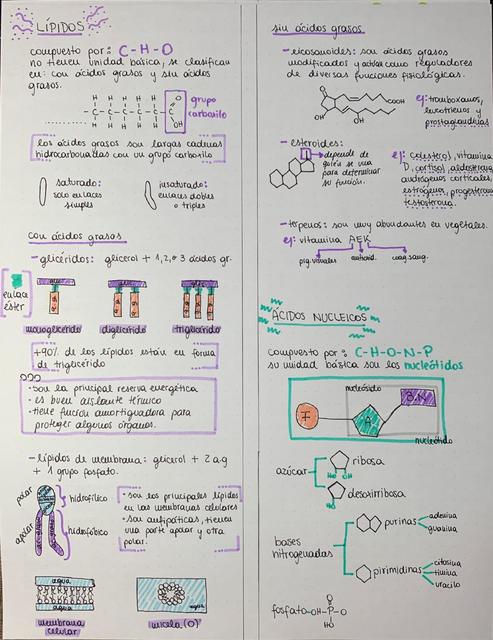 LÍPIDOS
compuesto por: C-H-O
no tienen unidad básica, se clasifican
en: con ácidos grasos y sin ácidos
grasos.
H H H H H O
C-C-C-C-C-C
H H H H H OH
grupo
carboxilo
los ácidos grasos son largas cadenas
hidrocarbonadas con un grupo carboxilo
saturado:
solo enlaces
simples
insaturado:
enlaces dobles
o triples
con ácidos grasos
- glicéridos: glicerol + 1, 2, o 3 ácidos gr.
enlace
éster
monoglicérido
diglicérido
triglicérido
+90% de los lípidos están en forma
de triglicérido
· son la principal reserva energética
· es buen aislante térmico
· tiene función amortiguadora para
proteger algunos órganos.
- lípidos de membrana: glicerol + 2 a.g
+ 1 grupo fosfato.
polar
hidrofílico
apolar
hidrofóbico
· son los principales lípidos
en las membranas celulares
· son antipáticas, tienen
una parte apolar y otra
polar.
agua
agua
membrana
celular
agua
micela (O)
sin ácidos grasos
- eicosanoides: son ácidos grasos
modificados y actúan como reguladores
de diversas funciones fisiológicas.
O
COOH
OH
OH
ej: tromboxanos,
leucotrienos y
prostaglandinas
- esteroides:
depende de
quién se una
para determinar
su función.
ej: Colesterol, vitamina
D, cortisol, aldosterona,
andrógenos corticales,
estrógeno, progesterona
testosterona.
- terpenos: son muy abundantes en vegetales.
ej: vitamina A E K
pig. visuales
antioxid.
coag. sang.
ÁCIDOS NUCLEICOS
compuesto por: C-H-O-N-P
su unidad básica son los nucleótidos
nucleósido
F
A
B.N
nucleótido
azúcar
ribosa
HO OH
desoxirribosa
HO
bases
nitrogenadas
purinas
adenina
guanina
pirimidinas
citosina
timina
uracilo
fosfato
O
OH-P-O
HO